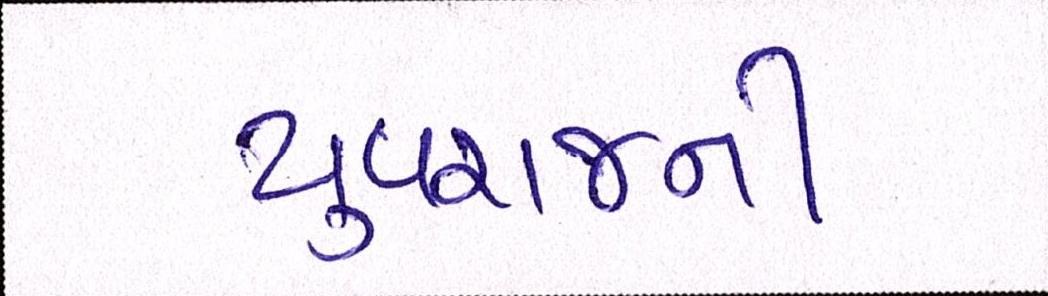 યુવરાજની